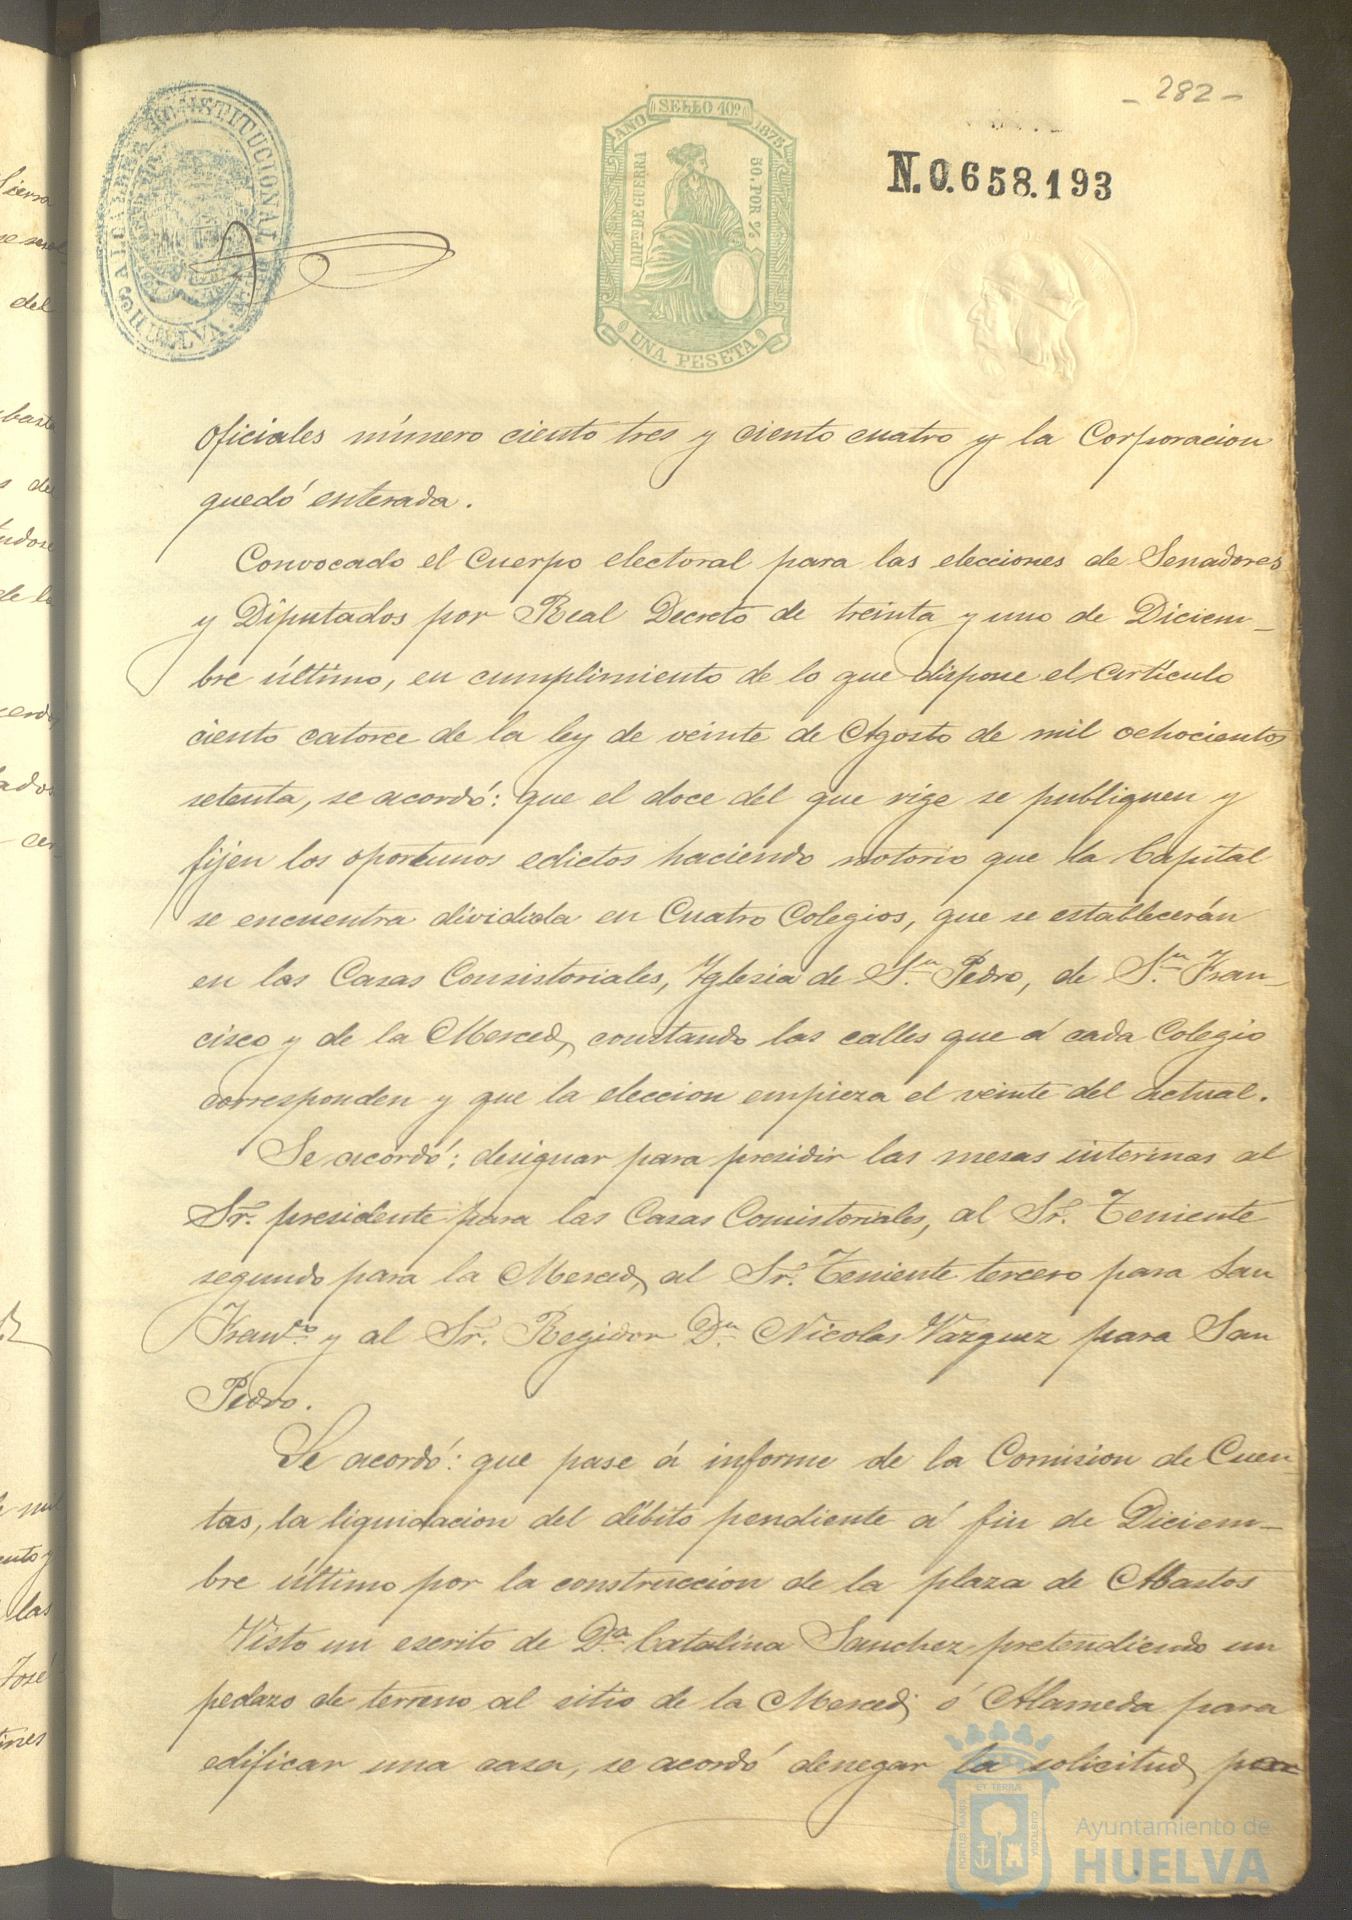 - 282 -
ALCALDIA CONSTITUCIONAL DE HUELVA
SELLO 10º
AÑO 1875
IMPto DE GUERRA
50. POR %
UNA PESETA
N.0.658.193
oficiales número ciento tres y ciento cuatro y la Corporacion
quedó enterada.
Convocado el Cuerpo electoral para las elecciones de Senadores
y Diputados por Real Decreto de treinta y uno de Diciem-
bre último, en cumplimiento de lo que dispone el articulo
ciento catorce de la ley de veinte de Agosto de mil ochocientos
setenta, se acordó: que el doce del que rige se publiquen y
fijen los oportunos edictos haciendo notorio que la Capital
se encuentra dividida en Cuatro Colegios, que se establecerán
en las Casas Consistoriales, Iglesia de Sn. Pedro, de Sn. Fran-
cisco y de la Merced, constando las calles que á cada Colegio
corresponden y que la eleccion empieza el veinte del actual.
Se acordó: designar para presidir las mesas interinas al
Sr. presidente para las Casas Consistoriales, al Sr. Teniente
segundo para la Merced, al Sr. Teniente tercero para San
Franco y al Sr. Regidor Dn. Nicolas Vazquez para San
Pedro.
Se acordó: que pase á informe de la Comision de Cuen-
tas, la liquidacion del débito pendiente á fin de Diciem-
bre último por la construccion de la plaza de Abastos
Visto un escrito de Da. Catalina Sanchez pretendiendo un
pedazo de terreno al sitio de la Merced ó Alameda para
edificar una casa, se acordó denegar la solicitud por
PORTUS MARIS ET TERRAE CUSTODIA
Ayuntamiento de
HUELVA